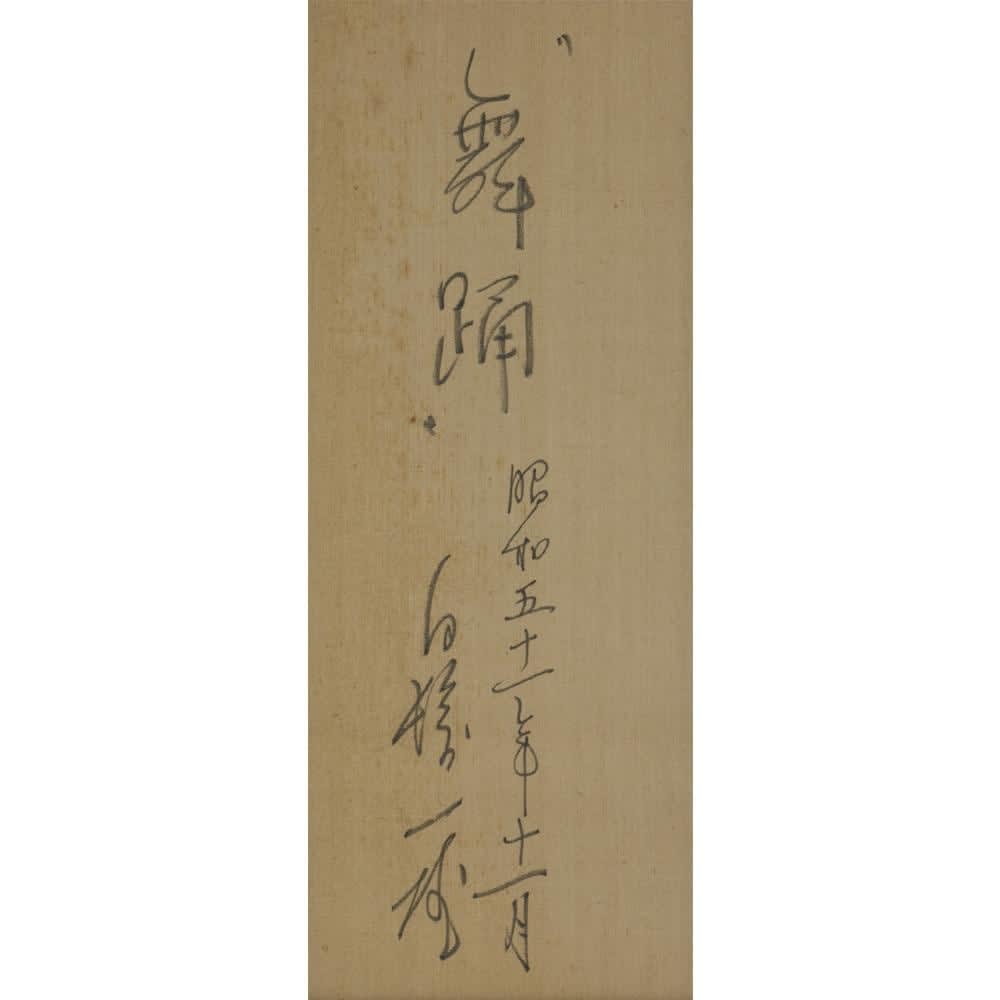 舞踊
昭和五十一年十一月
白髪一雄